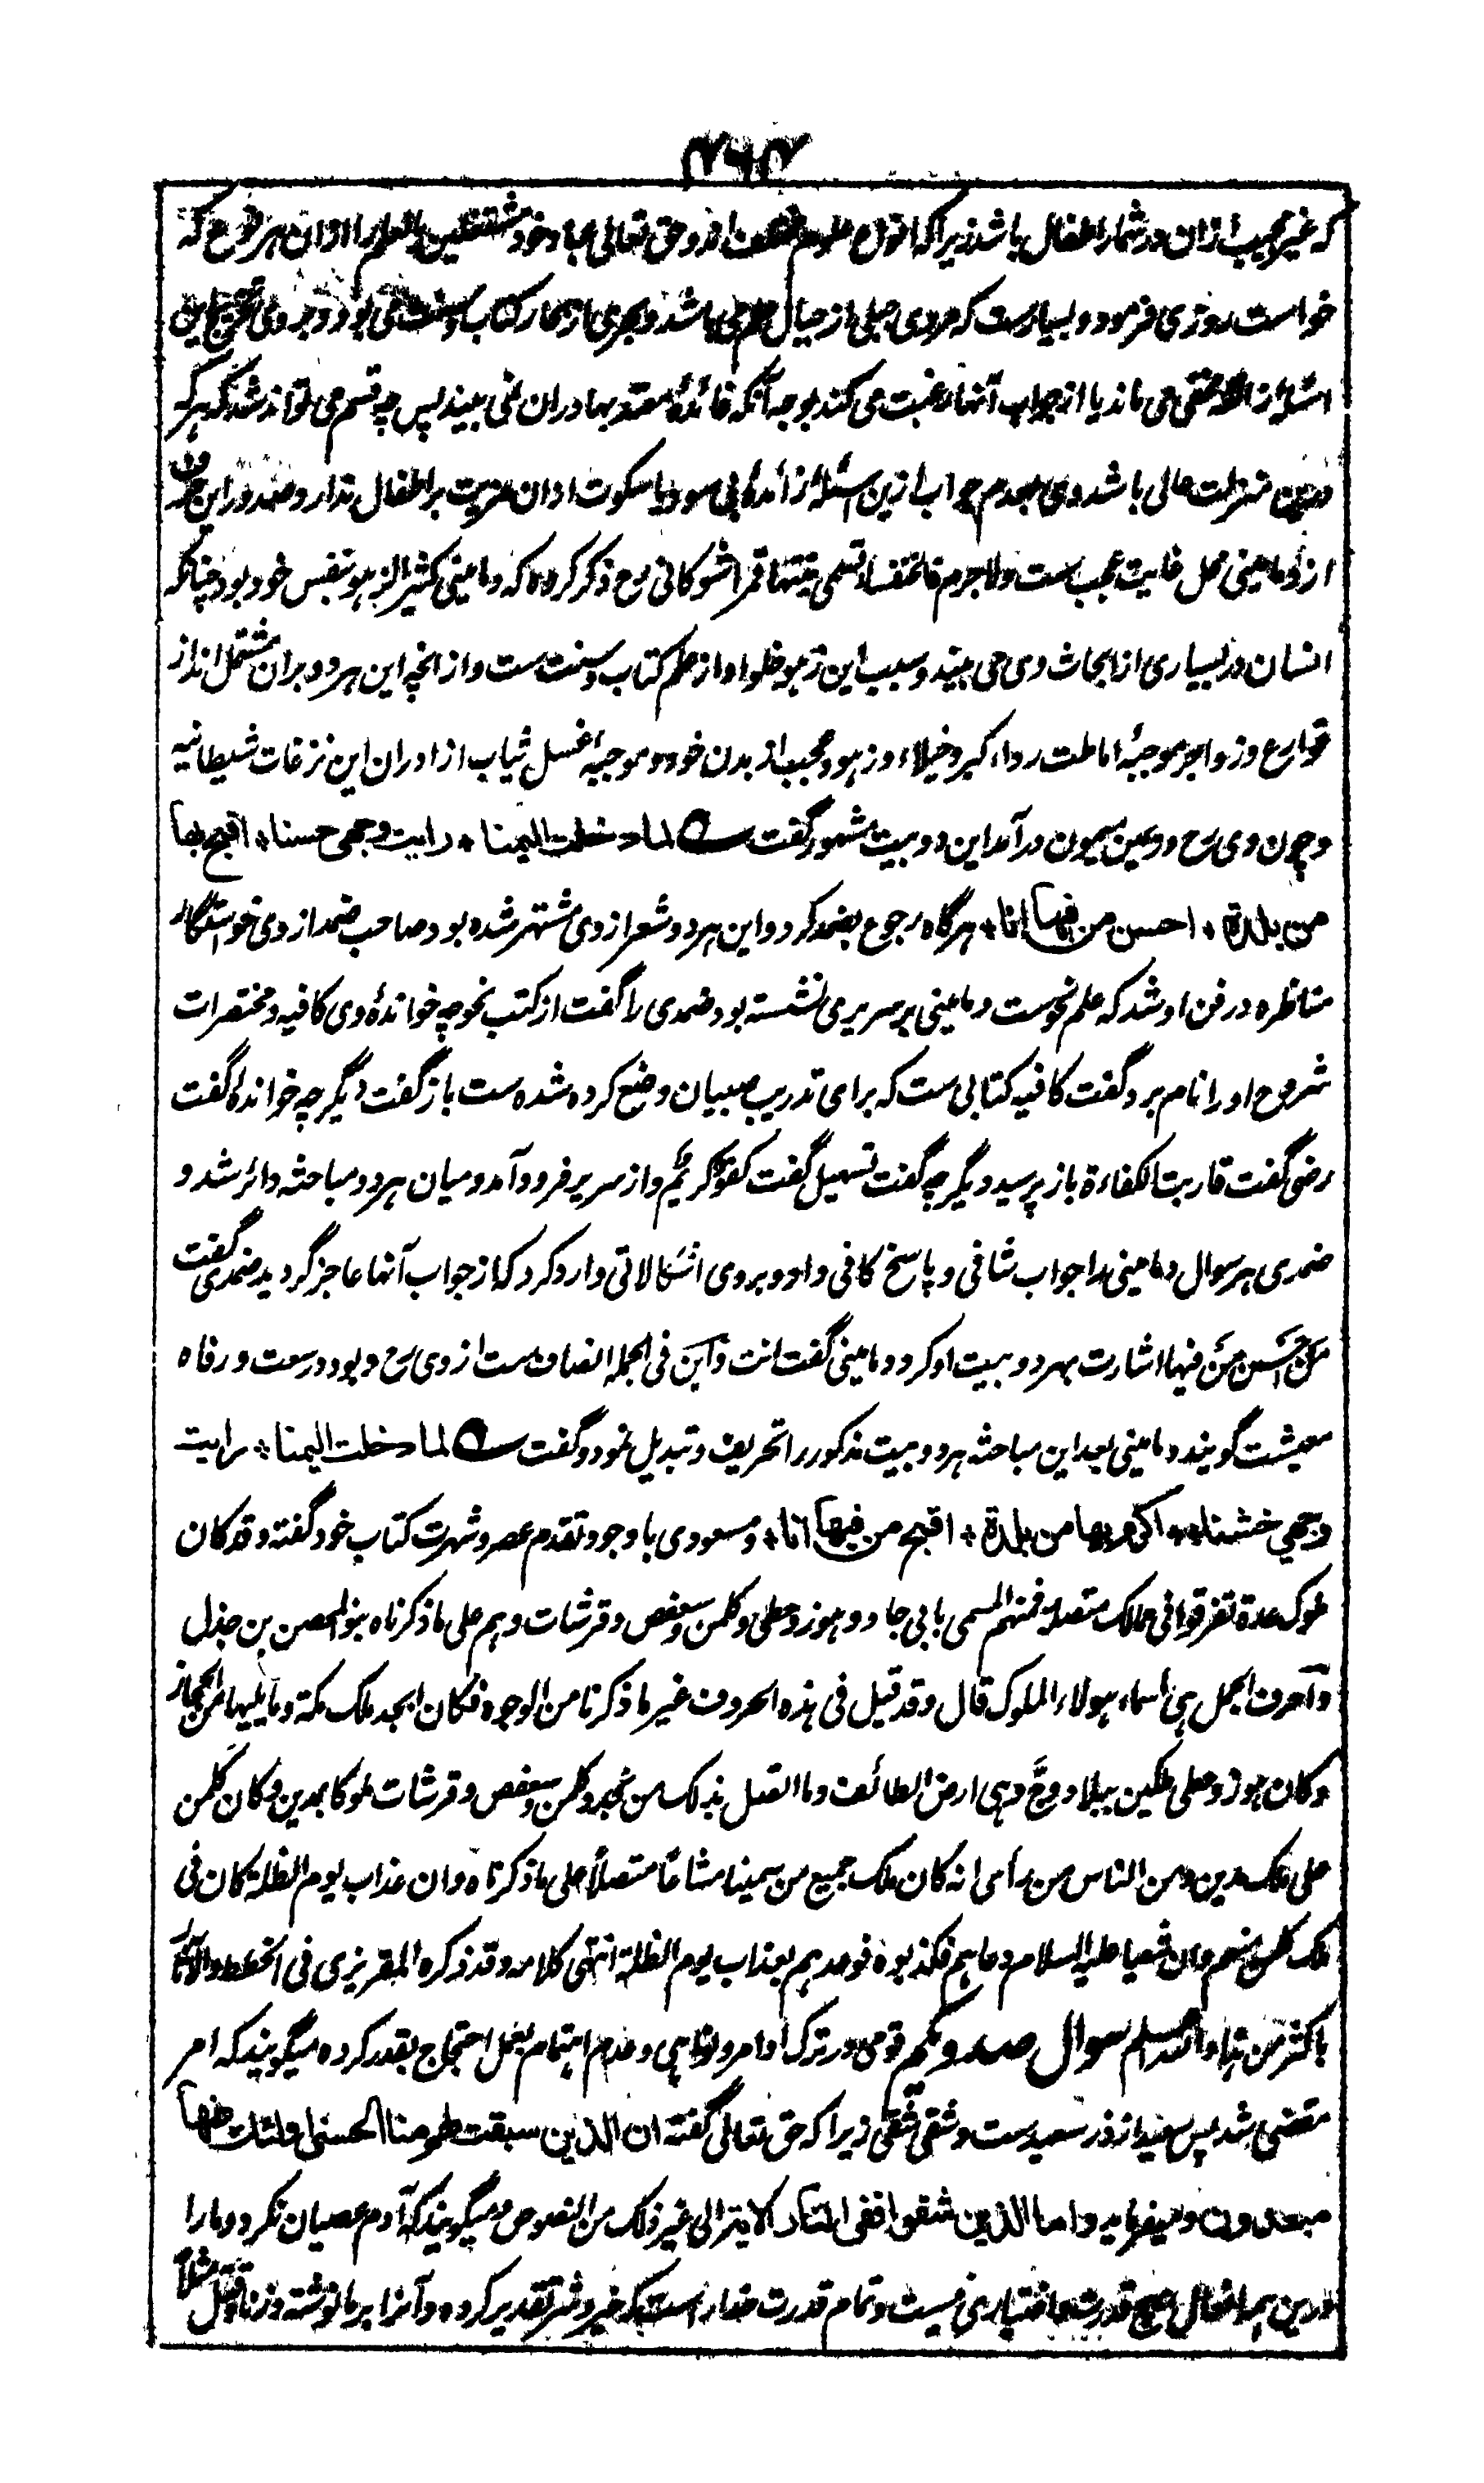 ۴۶۳
که غیر مجیب ازان در شمار اطفال باشد زیرا که انواع علوم مختلف اند و حق تعالی عباد خود مشتغلین بالعلم را ازان هر نوع که
خواست روزی فرمود و بسیارست که مردی جبلی از جبال علم می باشد و بحری از بحار کتاب و سنت می بود و بر وی تخریج این
اسئله از مخفی می ماند یا از جواب آنها رغبت می کند بوجه آنکه فائدهٔ معتد بها دران نمی بیند پس چه قسم می تواند شد که هر که
درین منزلت عالی باشد وی بعدم جواب ازین اسئلهٔ زائدهٔ بی سود یا سکوت ازان مزیت بر اطفال ندارد و صدور این حرف
از دمامینی محل غایت عجب ست ولا جرم شوکانی رح ذکر کرده که دمامینی کثیر الزهو بنفس خود بود چنانکه
انسان در بسیاری از ابحاث وی می بیند و سبب این زهو خلو او از علم کتاب و سنت ست و از انچه این هر دو بران مشتمل اند از
قوارع و زواجر موجبهٔ اماطت رداء کبر و خیلاء و زهو و عجب از بدن خود و موجبهٔ غسل ثیاب از ادران این نزغات شیطانیه
و چون وی رح در یمن میمون درآمد این دو بیت مشهور گفت لما دخلت الیمنا * رایت وجهی حسنا * اقبح بها
من بلدة * احسن من فیها انا * هرگاه رجوع بضمد کرد و این هر دو شعر از وی مشتهر شده بود صاحب ضمد از وی خواستگار
مناظره در فن او شد که علم نحوست دمامینی بر سریری نشسته بود ضمدی را گفت از کتب نحو چه خواندهٔ وی کافیه و مختصرات
شروح او را نام برد گفت کافیه کتابی ست که برای تدریب صبیان وضع کرده شده ست باز گفت دیگر چه خواندهٔ گفت
رضی گفت قاربت الکفاءة باز پرسید دیگر چه گفت تسهیل گفت کفؤ کریم و از سریر فرود آمد و میان هر دو مباحثه دائر شد و
ضمدی هر سوال دمامینی را جواب شافی و پاسخ کافی داد و بروی اشکالاتی وارد کرد که از جواب آنها عاجز گردید ضمدی گفت
مَن اَحسَن مَن فیها اشارت بهر دو بیت او کرد دمامینی گفت انت و این فی الجمله انصاف ست از وی رح و بود در سعت و رفاه
معیشت گویند دمامینی بعد این مباحثه هر دو بیت مذکور را تحریف و تبدیل نمود و گفت لما دخلت الیمنا * رایت
وجهی خشنا * اکرم بها من بلدة * اقبح من فیها انا * و مسعودی با وجود تقدم عصر و شهرت کتاب خود گفته و قد کان
ملوک عدة تفرقوا فی ممالک متصلة فمنهم المسمی بابی جاد و هوز و حطی و کلمن و سعفص و قرشات و هم علی ما ذکرناه بنو المحصن بن جندل
و احرف الجمل هی اسماء هولاء الملوک قال و قد قیل فی هذه الحروف غیر ما ذکرنا من الوجوه فکان ابجد ملک مکة و ما یلیها من الحجاز
و کان هوز و حطی ملکین ببلاد وجّ و هی ارض الطائف و ما اتصل بذلک من نجد و کلمن و سعفص و قرشات ملوکا بمدین و کان کلمن
علی ملک مدین و من الناس من رأی انه کان ملک جمیع من سمینا مشاعًا متصلاً علی ما ذکرناه و ان عذاب یوم الظلة کان فی
ملک کلمن منهم و ان شعیبا علیه السلام دعاهم فکذبوه فوعدهم بعذاب یوم الظلة انتهی کلامه و قد ذکره المقریزی فی الخطط والآثار
باکثر من هذا والله اعلم سوال صد و یکم قومی در ترک اوامر و نواهی و عدم اهتمام بعمل احتجاج بقدر کرده میگویند که امر
مقضی شد پس سعید از ذر سعیدست و شقی شقی زیرا که حق تعالی گفته ان الذین سبقت لهم منا الحسنی اولئک عنها
مبعدون و میفرماید و اما الذین شقوا ففی النار لایة الی غیر ذلک من النصوص و میگویند که آدم عصیان نکرد و ما را
درین همه افعال هیچ قدرت و اختیاری نیست و تمام قدرت خدا راست که خیر و شر تقدیر کرده و آنرا بر ما نوشته و زنا و قتل مثلاً